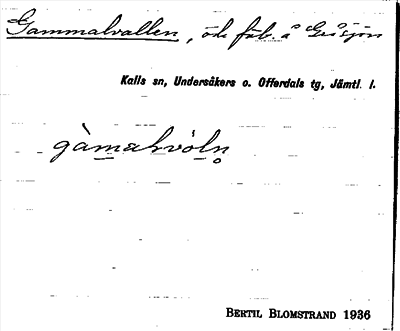 Gammalvallen, öde fäb. å Gåsjön
Kalls sn, Undersåkers o. Offerdals tg, Jämtl. l.
gàmahvòln̥
BERTIL BLOMSTRAND 1936